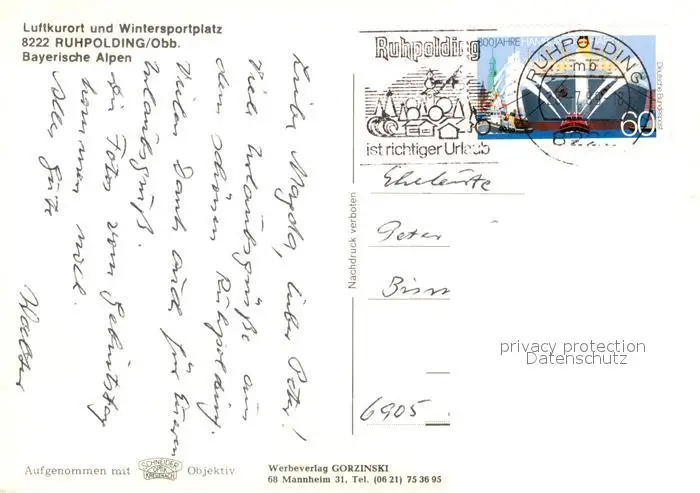 Luftkurort und Wintersportplatz
8222 RUHPOLDING/Obb.
Bayerische Alpen
Liebe Magda, lieber Peter!
Viele Urlaubsgrüße aus
dem schönen Ruhpolding.
Vielen Dank auch für Eueren
Urlaubsgruß.
Die Fotos vom Geburtstag
kommen noch.
Alles Gute
Walter
Aufgenommen mit
SCHNEIDER
KREUZNACH
Objektiv
Werbeverlag GORZINSKI
68 Mannheim 31, Tel. (06 21) 75 36 95
Nachdruck verboten
Ruhpolding
ist richtiger Urlaub
800 JAHRE
RUHPOLDING
mb
Deutsche Bundespost
60
Eheleute
Peter
6905
privacy protection
Datenschutz